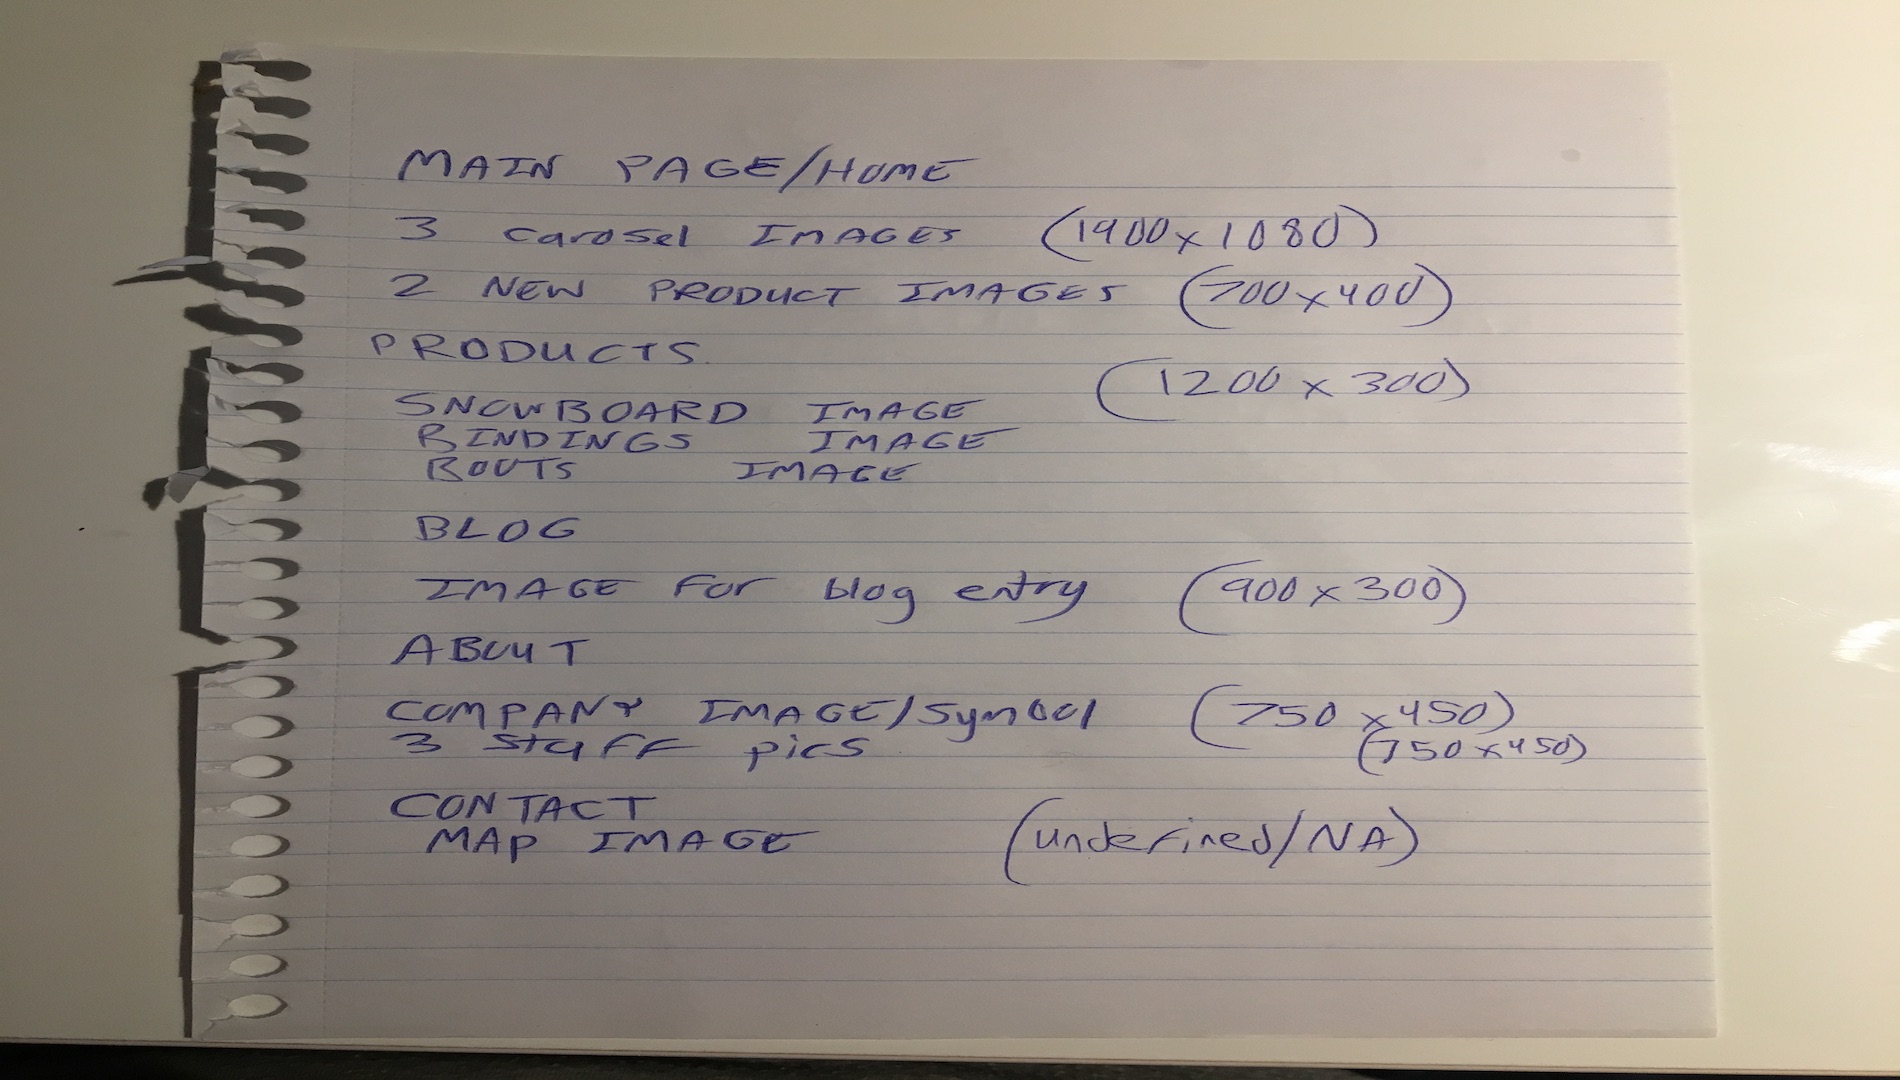 MAIN PAGE/HOME
3 carosel IMAGES (1900x1080)
2 NEW PRODUCT IMAGES (700x400)
PRODUCTS
(1200 x 300)
SNOWBOARD IMAGE
BINDINGS IMAGE
BOOTS IMAGE
BLOG
IMAGE For blog entry (900 x 300)
ABOUT
COMPANY IMAGE/Symbol (750 x 450)
3 staff pics (750 x 450)
CONTACT
MAP IMAGE (undefined/NA)